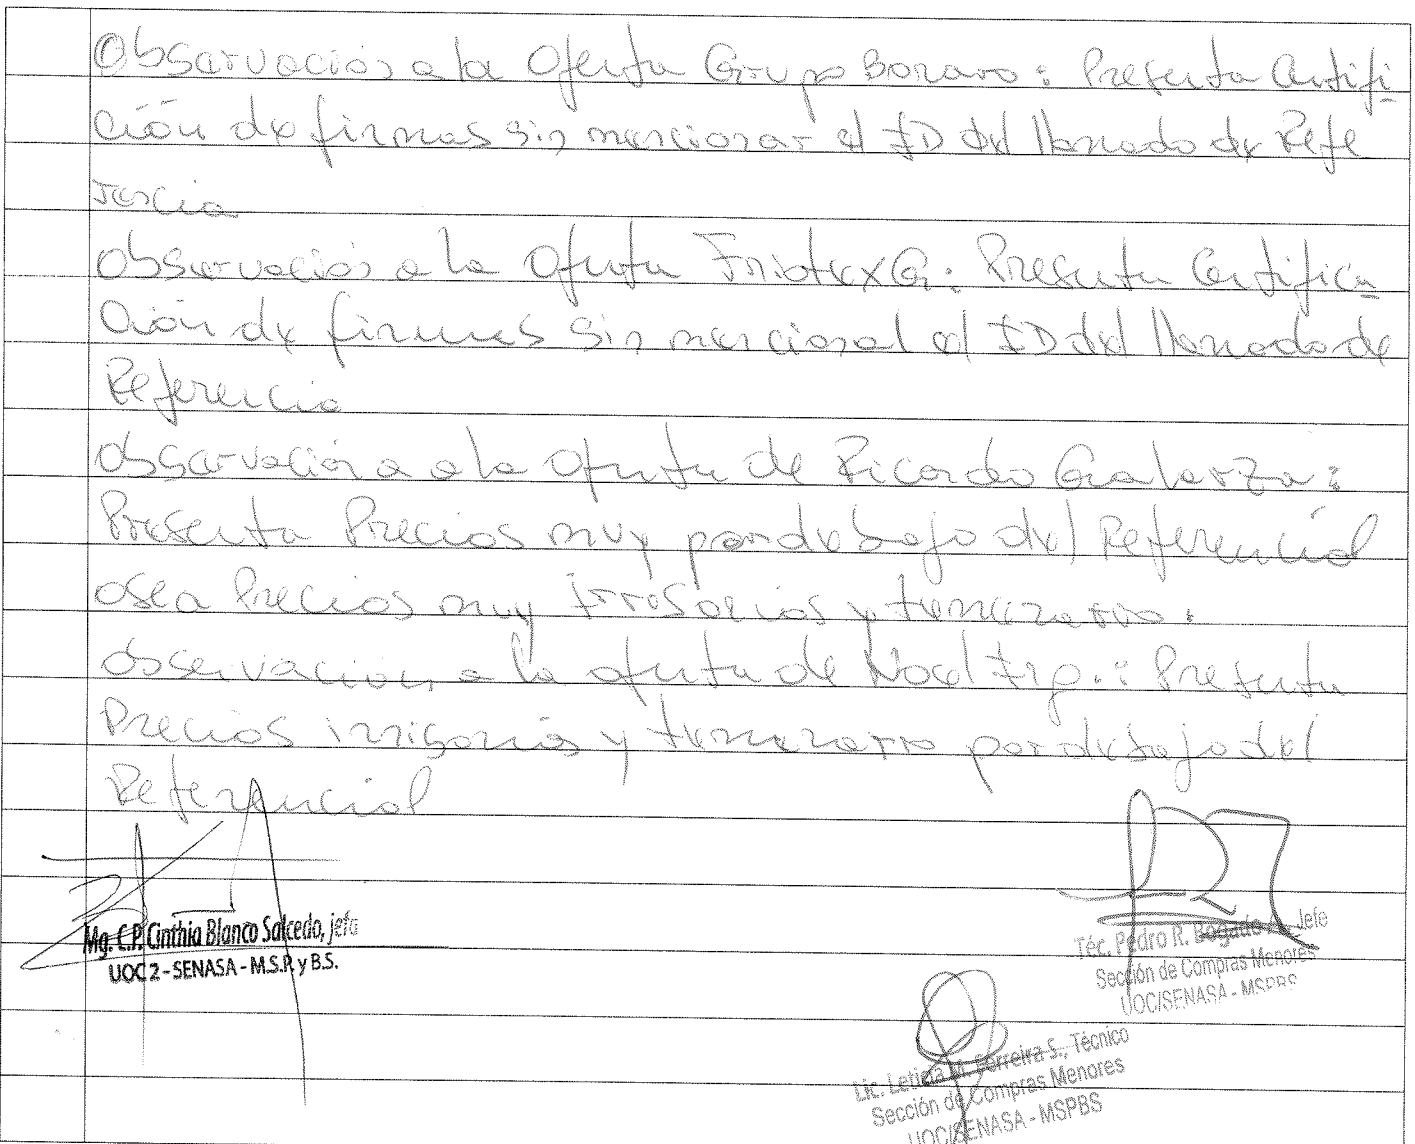 Observación a la Oferta Grupo Bonaro: Presenta Certifi-
ción de firmas sin mencionar el ID del llamado de Refe
rencia
Observación a la Oferta FriotexG: Presenta Certifica-
ción de firmas sin mencional el ID del llamado de
Referencia
observación a a la oferta de Ricardo Galarza:
Presenta Precios muy por debajo del Referencial
osea Precios muy Irrosorios y temerario.
observación a la oferta de Noel Irp.: Presenta
Precios irrisorios y temerario por debajo del
Referencial
Mg. C.P. Cinthia Blanco Salcedo, jefa
UOC 2 - SENASA - M.S.P. y B.S.
Téc. Pedro R. Bogado A., Jefe
Sección de Compras Menores
UOC/SENASA - MSPBS
Lic. Leticia M. Ferreira S., Técnico
Sección de Compras Menores
UOC/SENASA - MSPBS